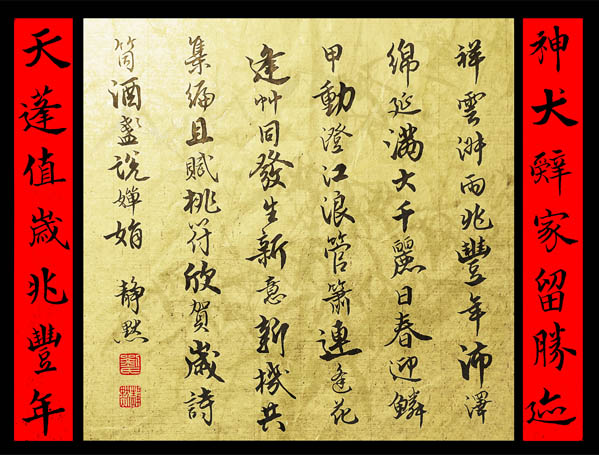 神犬辭家留勝迹
祥雲澍雨兆豐年沛澤
綿延滿大千麗日春迎鱗
甲動澄江浪管簫連逢花
逢艸同發生新意新機共
集編且賦桃符欣賀歲詩
筒酒盞說嬋娟 靜默
天蓬值歲兆豐年